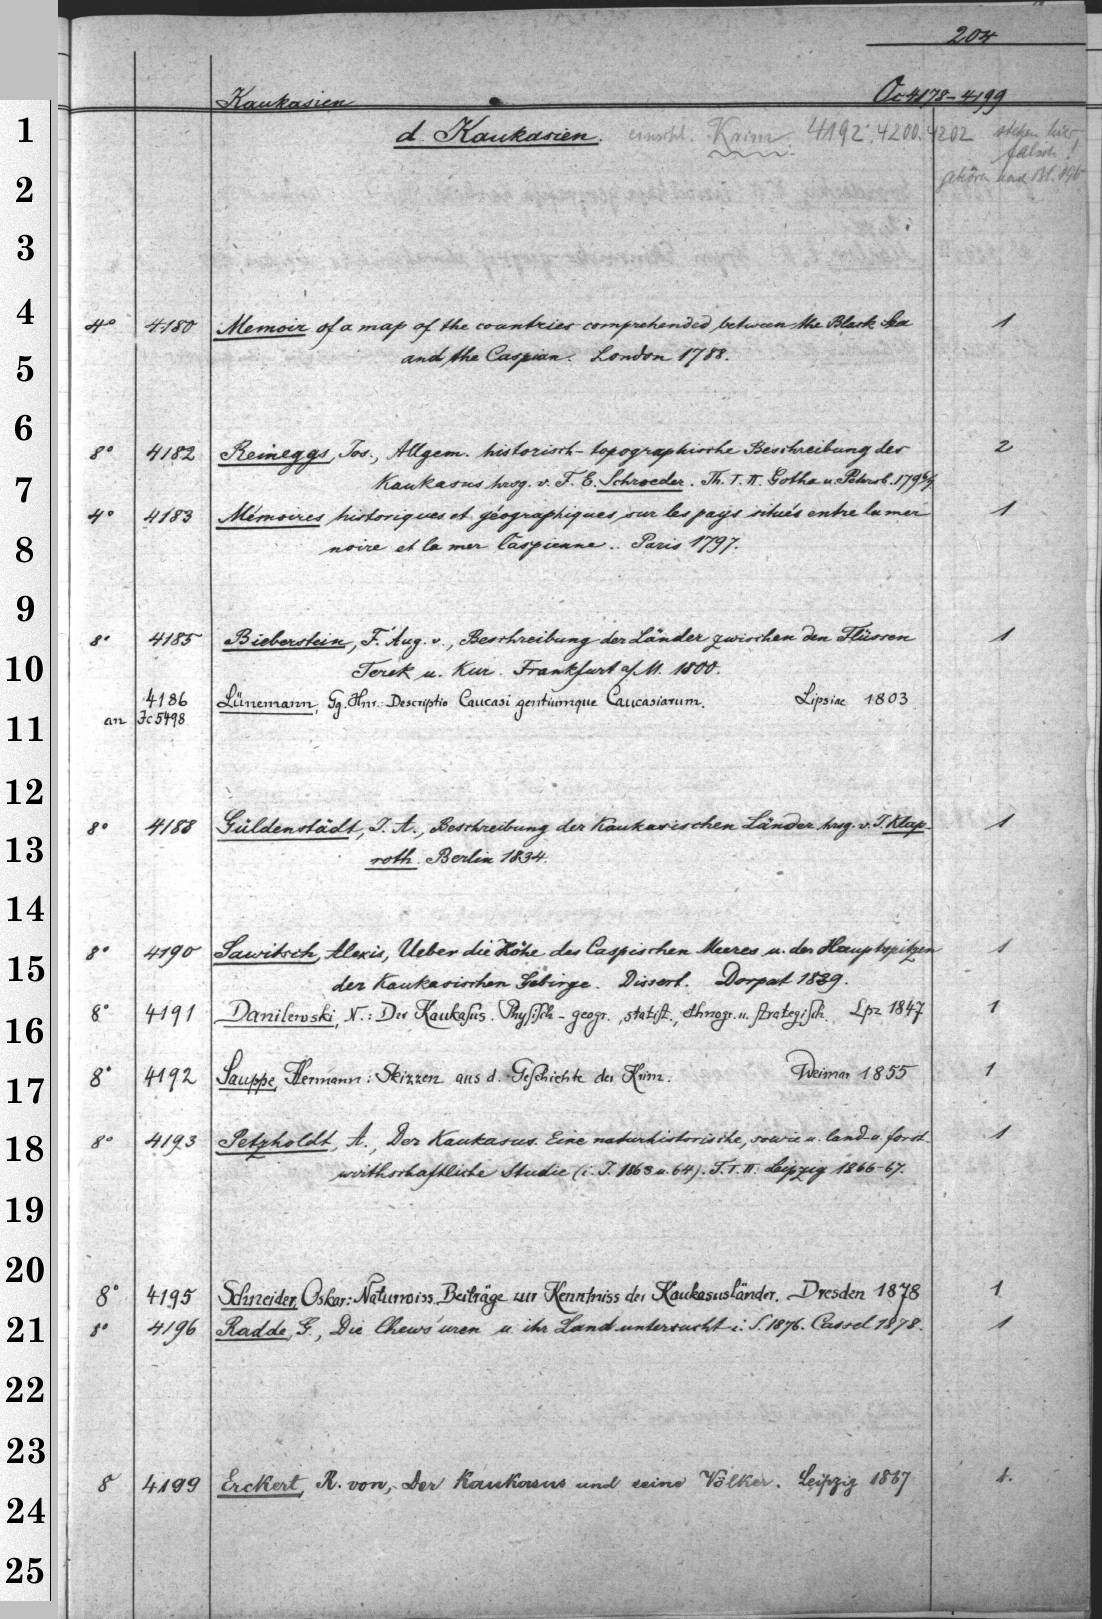 204
Kaukasien Oc 4178-4199
d. Kaukasien. einschl. Krim. 4192. 4200. 4202 stehen hier
falsch!
gehören nach Bl. 196
1
2
3
4
4° 4180 Memoir of a map of the countries comprehended between the Black Sea 1
and the Caspian. London 1788.
5
6
8° 4182 Reineggs, Jos., Allgem. historisch-topographische Beschreibung des 2
Kaukasus hrsg. v. F. E. Schroeder. Th. I. II. Gotha u. Petersb. 1796/7
7
4° 4183 Mémoires historiques et géographiques sur les pays situés entre la mer 1
noire et la mer Caspienne.. Paris 1797.
8
9
8° 4185 Bieberstein, F. Aug. v., Beschreibung der Länder zwischen den Flüssen 1
Terek u. Kur. Frankfurt a/M. 1800.
10
4186 Lünemann, Gg. Hnr.: Descriptio Caucasi gentiumque Caucasiarum. Lipsiae 1803
an Jc 5498
11
12
8° 4188 Güldenstädt, J. A., Beschreibung der Kaukasischen Länder hrsg. v. J. Klap- 1
roth. Berlin 1834.
13
14
8° 4190 Sawitsch, Alexis, Ueber die Höhe des Caspischen Meeres u. der Hauptspitzen 1
der Kaukasischen Gebirge. Dissert. Dorpat 1839.
15
8° 4191 Danilewski, N.: Der Kaukasus. Physisch-geogr., statist., ethnogr. u. strategisch. Lpz 1847 1
16
8° 4192 Sauppe, Hermann: Skizzen aus d. Geschichte der Krim. Weimar 1855 1
17
8° 4193 Petzholdt, A., Der Kaukasus. Eine naturhistorische, sowie u. land- u. forst- 1
wirthschaftliche Studie (i. J. 1863 u. 64). T. I. II. Leipzig 1866-67.
18
19
20
8° 4195 Schneider, Oskar: Naturwiss. Beiträge zur Kenntniss der Kaukasusländer. Dresden 1878 1
8° 4196 Radde, G., Die Chews'uren u. ihr Land untersucht i. S. 1876. Cassel 1878. 1
21
22
23
8° 4199 Erckert, R. von, Der Kaukasus und seine Völker. Leipzig 1887 1.
24
25